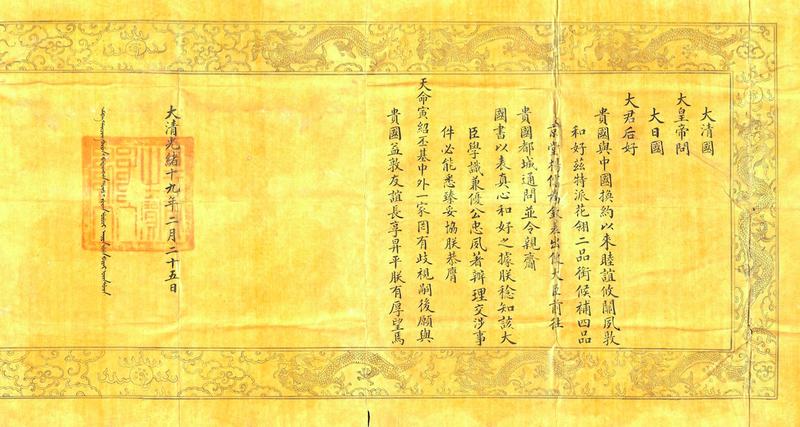 大清國
大皇帝問
大日國
大君后好
貴國與中國換約以來睦誼攸關夙敦
和好茲特派花翎二品銜候補四品
京堂楊儒為欽差出使大臣前往
貴國都城通問並令親齎
國書以表真心和好之據朕稔知該大
臣學識兼優公忠夙著辦理交涉事
件必能悉臻妥協朕恭膺
天命寅紹丕基中外一家罔有歧視嗣後願與
貴國益敦友誼長享昇平朕有厚望焉
大清光緒十九年二月二十五日